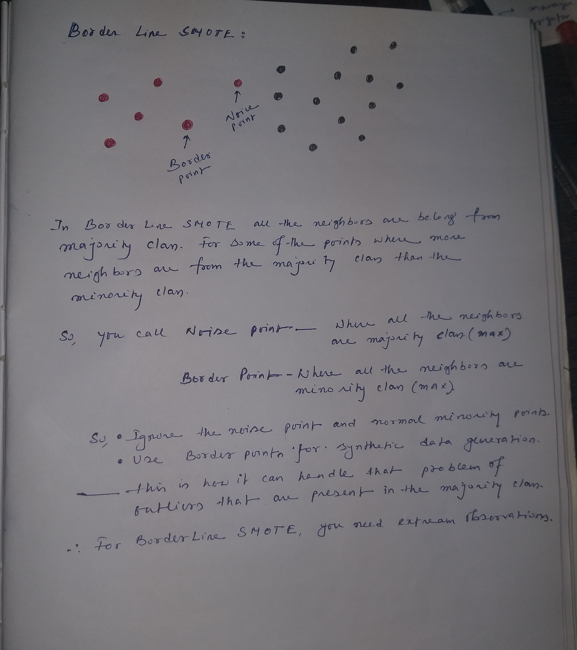 Border Line SMOTE:
Noise
point
Border
point
In Border Line SMOTE all the neighbors are belong from
majority class. For some of the points where more
neighbors are from the majority class than the
minority class.
So, you call Noise point — Where all the neighbors
are majority class (max)
Border Point - Where all the neighbors are
minority class (max)
So, • Ignore the noise point and normal minority points.
• Use Border points for synthetic data generation.
— this is how it can handle that problem of
outliers that are present in the majority class.
∴ For BorderLine SMOTE, you need extream observations.